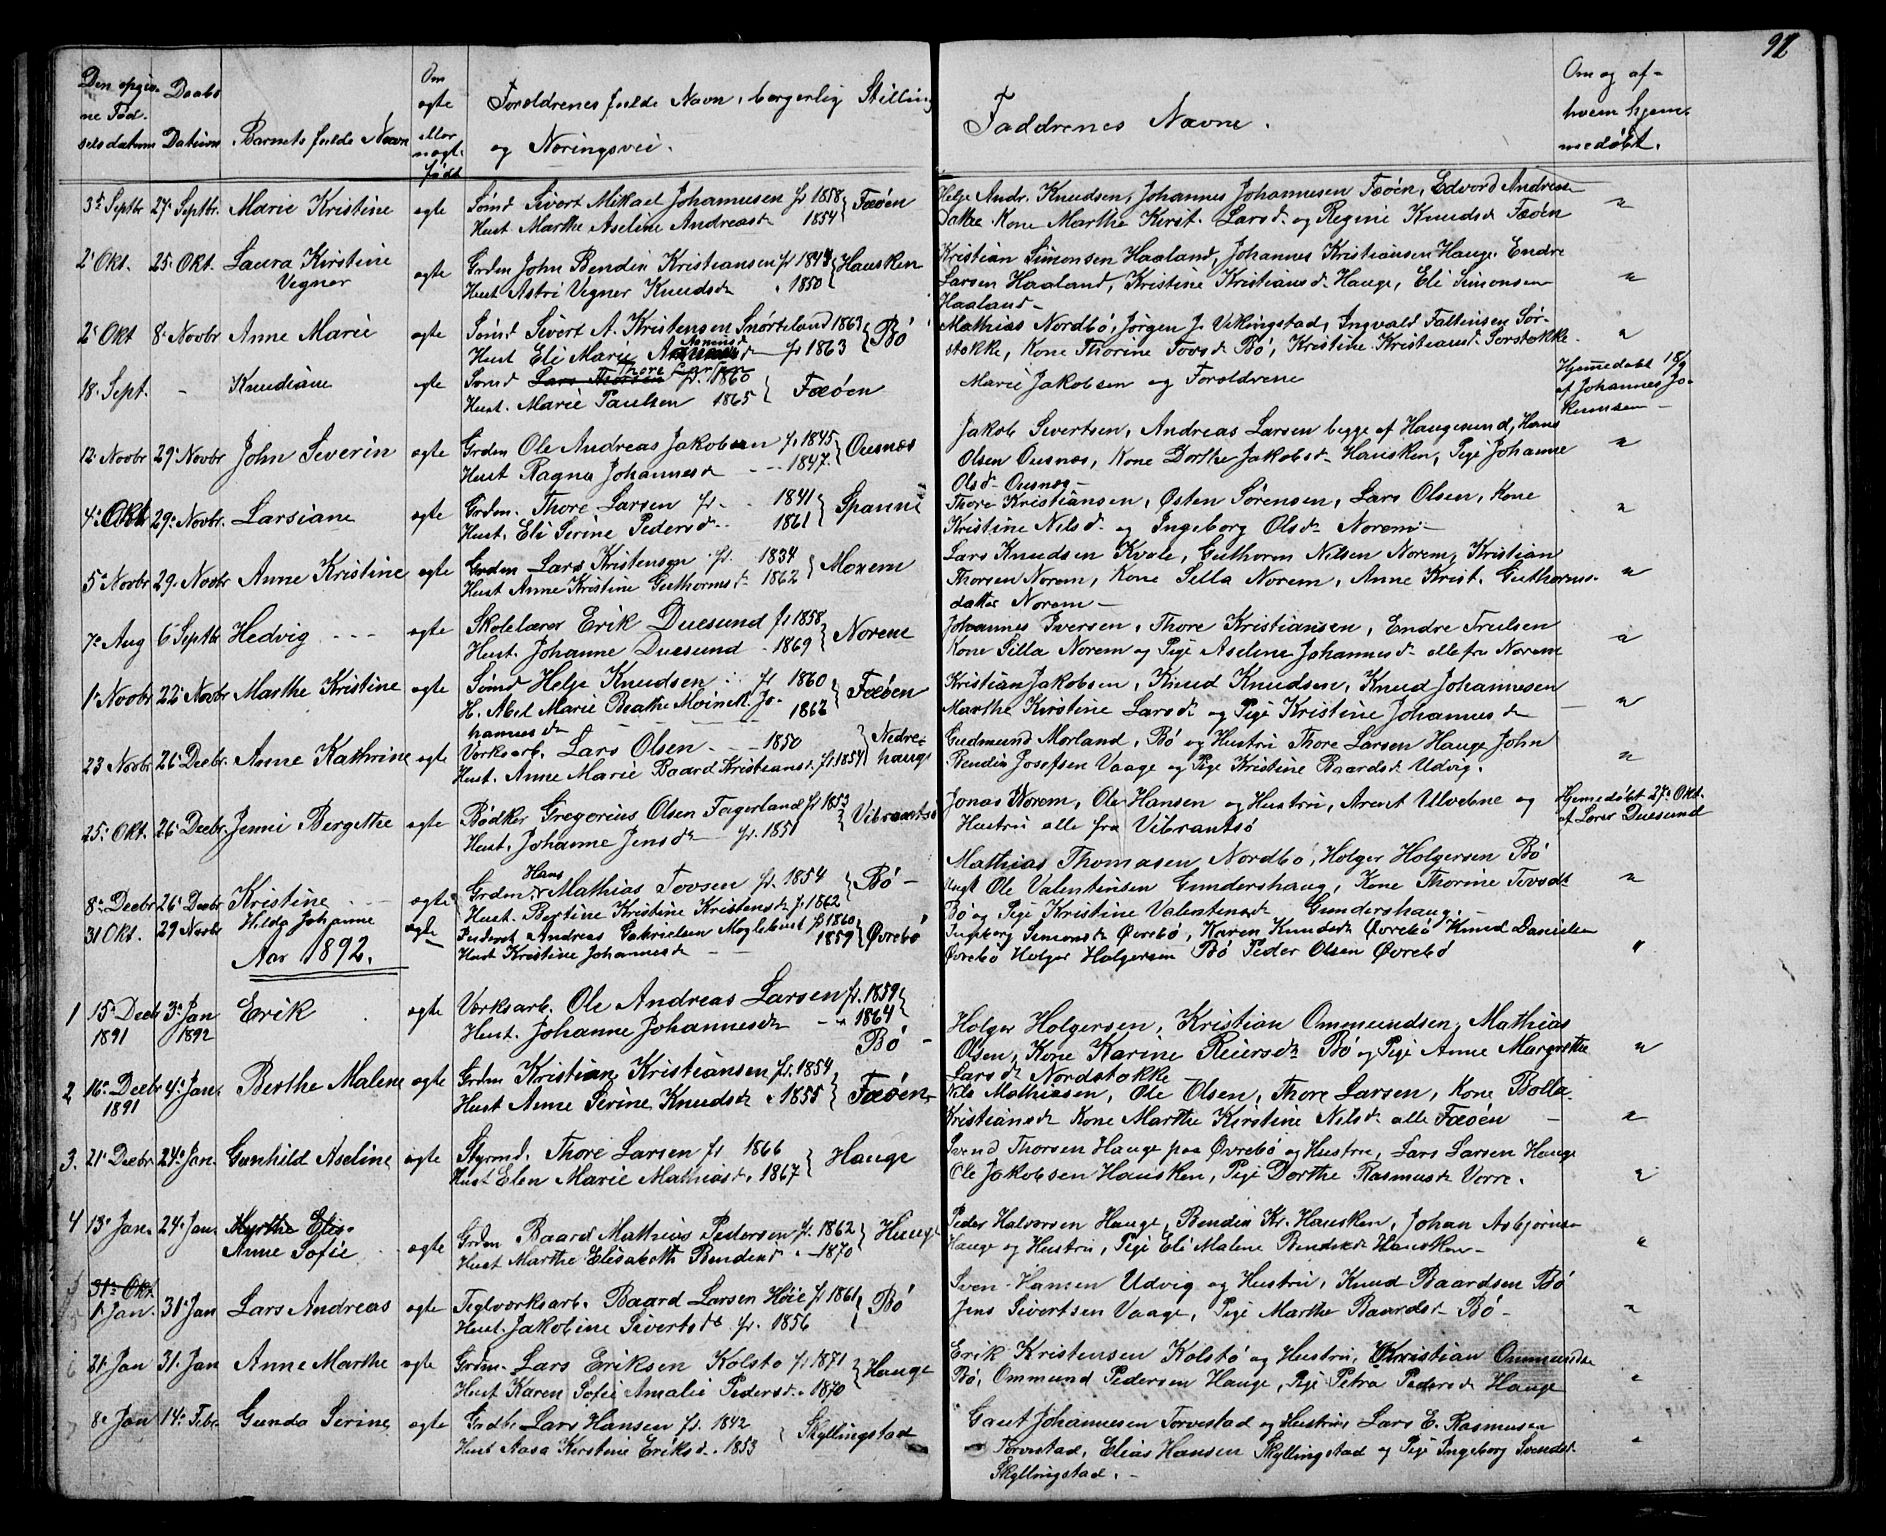 92
Den opgiv-
ne Fød-
selsdatum
Daabs
Datum
Barnets fulde Navn
Om
ægte
eller
uægte
født
Forældrenes fulde Navn, borgerlig Stilling
og Næringsvei.
Faddrenes Navne.
Om og af
hvem hjem-
medøbt.
3 Septbr 27 Septbr. Marie Kristine ægte Sømd Sivert Mikael Johannesen f. 1858 Fæøen
Hust. Marthe Aseline Andreasd 1854
Helje Andr. Knudsen, Johannes Johannesen Fæøen, Edvard Andreas
Kone Marthe Kirst. Larsd. og Regine Knudsd. Fæøen "
2 Okt. 25 Okt. Laura Kirstine ægte Grdm John Bendix Kristiansen f. 1844 Hausken
Vegner Hust Astri Vegner Knudsd " 1850
Kristian Simonsen Haaland, Johannes Kristiansen Hauge. Endre
Larsen Haaland, Kristine Kristiansd. Hauge, Eli Simonsen "
Haaland -
2 Okt 8 Novbr Anne Marie ægte Sømd Sivert A. Kristensen Snørteland 1863 Bø
Hust Eli Marie Asmusd f. 1863
Mathias Nordbø, Jørgen J. Vikingstad, Ingvald Faltinsen Sør-
stokke, Kone Thorine Tovsd Bø, Kristine Kristiansd Sørstokke. "
18 Sept. - Knudiane ægte Sømd Lars Thorsen Thore Larsen f. 1860 Fæøen
Hust. Marie Paulsen 1865
Marie Jakobsen og Forældrene
Hjemmedøbt 18/9
af Johannes Jo-
hannesen -
12 Novbr 29 Novbr John Severin ægte Grdm Ole Andreas Jakobsen f. 1845 Ousnæs
Hust Ragna Johannesd - - 1847.
Jakob Sivertsen, Andreas Larsen begge af Haugesund, Hans
Olsen Ousnæs, Kone Dorthe Jakobsd. Hausken, Pige Johanne "
Olsd. Ousnæs -
4 Okt 29 Novbr. Larsiane ægte Grdm. Thore Larsen f. 1841 Spanne
Hust. Eli Serine Pedersd. 1861
Thore Kristiansen, Østen Sørensen, Lars Olsen, Kone
Kristine Nilsd. og Ingeborg Olsd. Norem - "
5 Novbr 29. Novbr Anne Kristine ægte Grdm Lars Kristensen f. 1834 Moxem
Hust Anne Kristine Guthormsd 1862
Lars Knudsen Kvale, Guthorm Nilsen Norem, Kristian
Thorsen Norem, Kone Silla Norem, Anne Krist. Guthorms- "
datter Norem -
7 Aug 6 Septbr Hedvig - - - ægte Skolelærer Erik Duesund f. 1858 Norene
Hust. Johanne Duesund - 1869
Johannes Iversen, Thore Kristiansen, Endre Trulsen
Kone Silla Norem og Pige Aseline Johannesd. alle fra Norem "
1 Novbr 22 Novbr Marthe Kristine ægte Sømd Helje Knudsen f. 1860 Fæøen
H. Abel Marie Beathe Jo- 1862
hannesd
Kristian Jakobsen, Knud Knudsen, Knud Johannesen
Marthe Kirstine Larsd og Pige Kristine Johannesd "
23 Novbr 26 Decbr. Anne Kathrine ægte Værksarb. Lars Olsen - 1850 Nedre-
Hust. Anne Marie Baard Kristiansd. f. 1854 hauge
Gudmund Morland, Bø og Hustru Thore Larsen Hauge John
Bendix Josefsen Vaage og Pige Kristine Baardsd. Udvig. "
25 Okt. 26 Decbr. Jenni Bergithe ægte Bødker Gregorius Olsen Fagerland f. 1853 Vibrantsø
Hust. Johanne Jensd f. 1851
Jonas Norem, Ole Hansen og Hustru, Arent Ulvehne og
Hustru alle fra Vibrantsø
Hjemmedøbt 27 Okt.
af Lærer Duesund
8 Decbr 26 Decbr Kristine ægte Grdm Hans Mathias Tovsen f. 1854 Bø -
Hust. Bertine Kristine Kristensd f. 1862
Mathias Thomasen Nordbø, Holger Holgersen Bø
Ungk Ole Valentinsen Gundershaug, Kone Thorine Tovsdt "
Bø og Pige Kristine Valentensd Gundershaug. -
31 Okt. 29 Novbr Hilda Johanne ægte Inderst Andreas Gabrielsen Moglebust f. 1860 Øvrebø
Hust Kristine Johannesd 1859
Ingeborg Simonsd Øvrebø, Karen Knudsd Øvrebø Knud Danielsen
Øvrebø Holger Holgersen Bø Peder Olsen Øvrebø "
Aar 1892.
1 15 Decbr 3 Jan Erik ægte Værksarb. Ole Andreas Larsen f. 1859
1891 1892 Hust. Johanne Johannesd - " 1864
Bø -
Holger Holgersen, Kristian Ommundsen, Mathias
Olsen, Kone Karine Reiersd. Bø og Pige Anne Margrethe "
Larsd. Nordstokke -
2 16 Decbr 4 Jan. Berthe Malene ægte Grdm Kristian Kristiansen f. 1854 Fæøen
1891 Hust Anne Serine Knudsd " 1855
Nils Mathiasen, Ole Olsen, Thore Larsen, Kone Bolla
Kristiansd Kone Marthe Kirstine Nilsd. alle Fæøen - "
3. 21 Decbr 24 Jan. Gunhild Aseline ægte Styrmd. Thore Larsen f. 1866 Hauge
Hust Elen Marie Mathiasd. 1867
Svend Thorsen Hauge paa Øvrebø og Hustru, Lars Larsen Hauge
Ole Jakobsen Hausken, Pige Dorthe Rasmusd. Vorre. "
4 13 Jan. 24 Jan. Marthe Elis-
Anne Sofie - ægte Grdm Baard Mathius Pedersen f. 1862 Hauge
Hust Marthe Elisabeth Bendixd " 1870
Peder Halvorsen Hauge, Bendix Kr. Hausken, Johan Asbjørnsen
Hauge og Hustru, Pige Eli Malene Bendixd. Hausken - "
31 Okt.
5 1 Jan. 31 Jan Lars Andreas ægte Teglværksarb. Baard Larsen Høie f. 1861 Bø
Hust. Jakobine Sivertsdt f. 1856
Sven Hansen Udvig og Hustru, Knud Baardsen Bø
Jens Sivertsen Vaage, Pige Marthe Baardsd. Bø - "
6 21 Jan 31 Jan Anne Marthe ægte Grdm. Lars Eriksen Kolstø f. 1871 Hauge
Hust Karen Sofie Amalie Pedersd. 1870
Erik Kristensen Kolstø og Hustru, Kristian Ommundsen
Bø, Ommund Pedersen Hauge, Pige Petra Pedersd Hauge "
7 8 Jan 14 Febr. Gunda Serine ægte Grdbr Lars Hansen f. 1842 Skyllingstad
Hust Aasa Kirstine Eriksd. 1853
Gaut Johannesen Torvestad og Hustru, Lars E. Rasmusen
Torvestad, Elias Hansen Skyllingstad og Pige Ingeborg Svendsd "
Skyllingstad. -